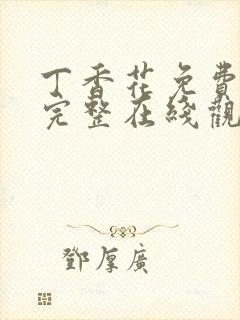 丁香花免費
完整在綫觀
鄧厚廣